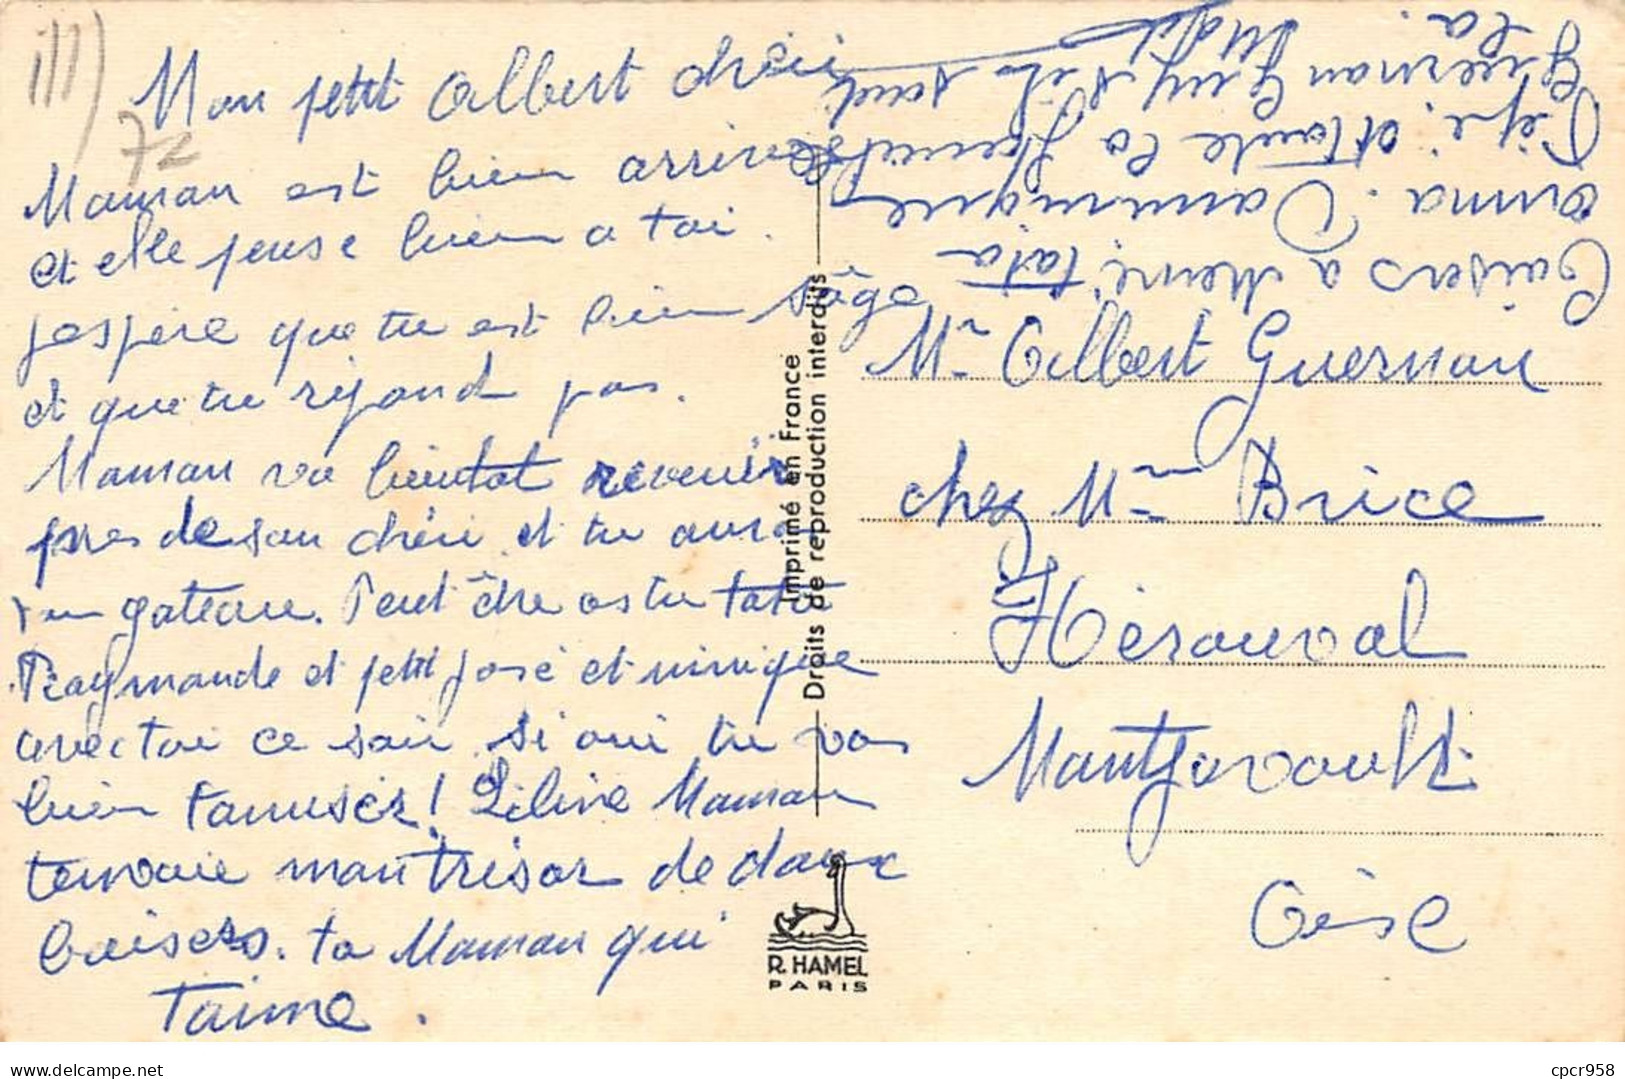 Mon petit Albert chéri
Maman est bien arrivée
et elle pense bien a toi.
jespère que tu est bien sâge
et que tu répond pas.
Maman va bientot revenir
pres de son chéri et tu aura
un gateau. Peut être as tu tata
Raymonde et petit josé et minique
avec toi ce soir si oui tu vas
bien tamuser! Liline Maman
tenvoie mon trésor de doux
baisers. ta Maman qui
taime.
baisers a Mémé, tata
anna. Dominique
Pépé, et toute la famille
Guerman Guy
la.
Mr Albert Guerman
chez Mme Brice
Hérouval
Montjavoult
Oise
Imprimé en France
Droits de reproduction interdits
R. HAMEL
PARIS
72
delcampe.net
cpcr958